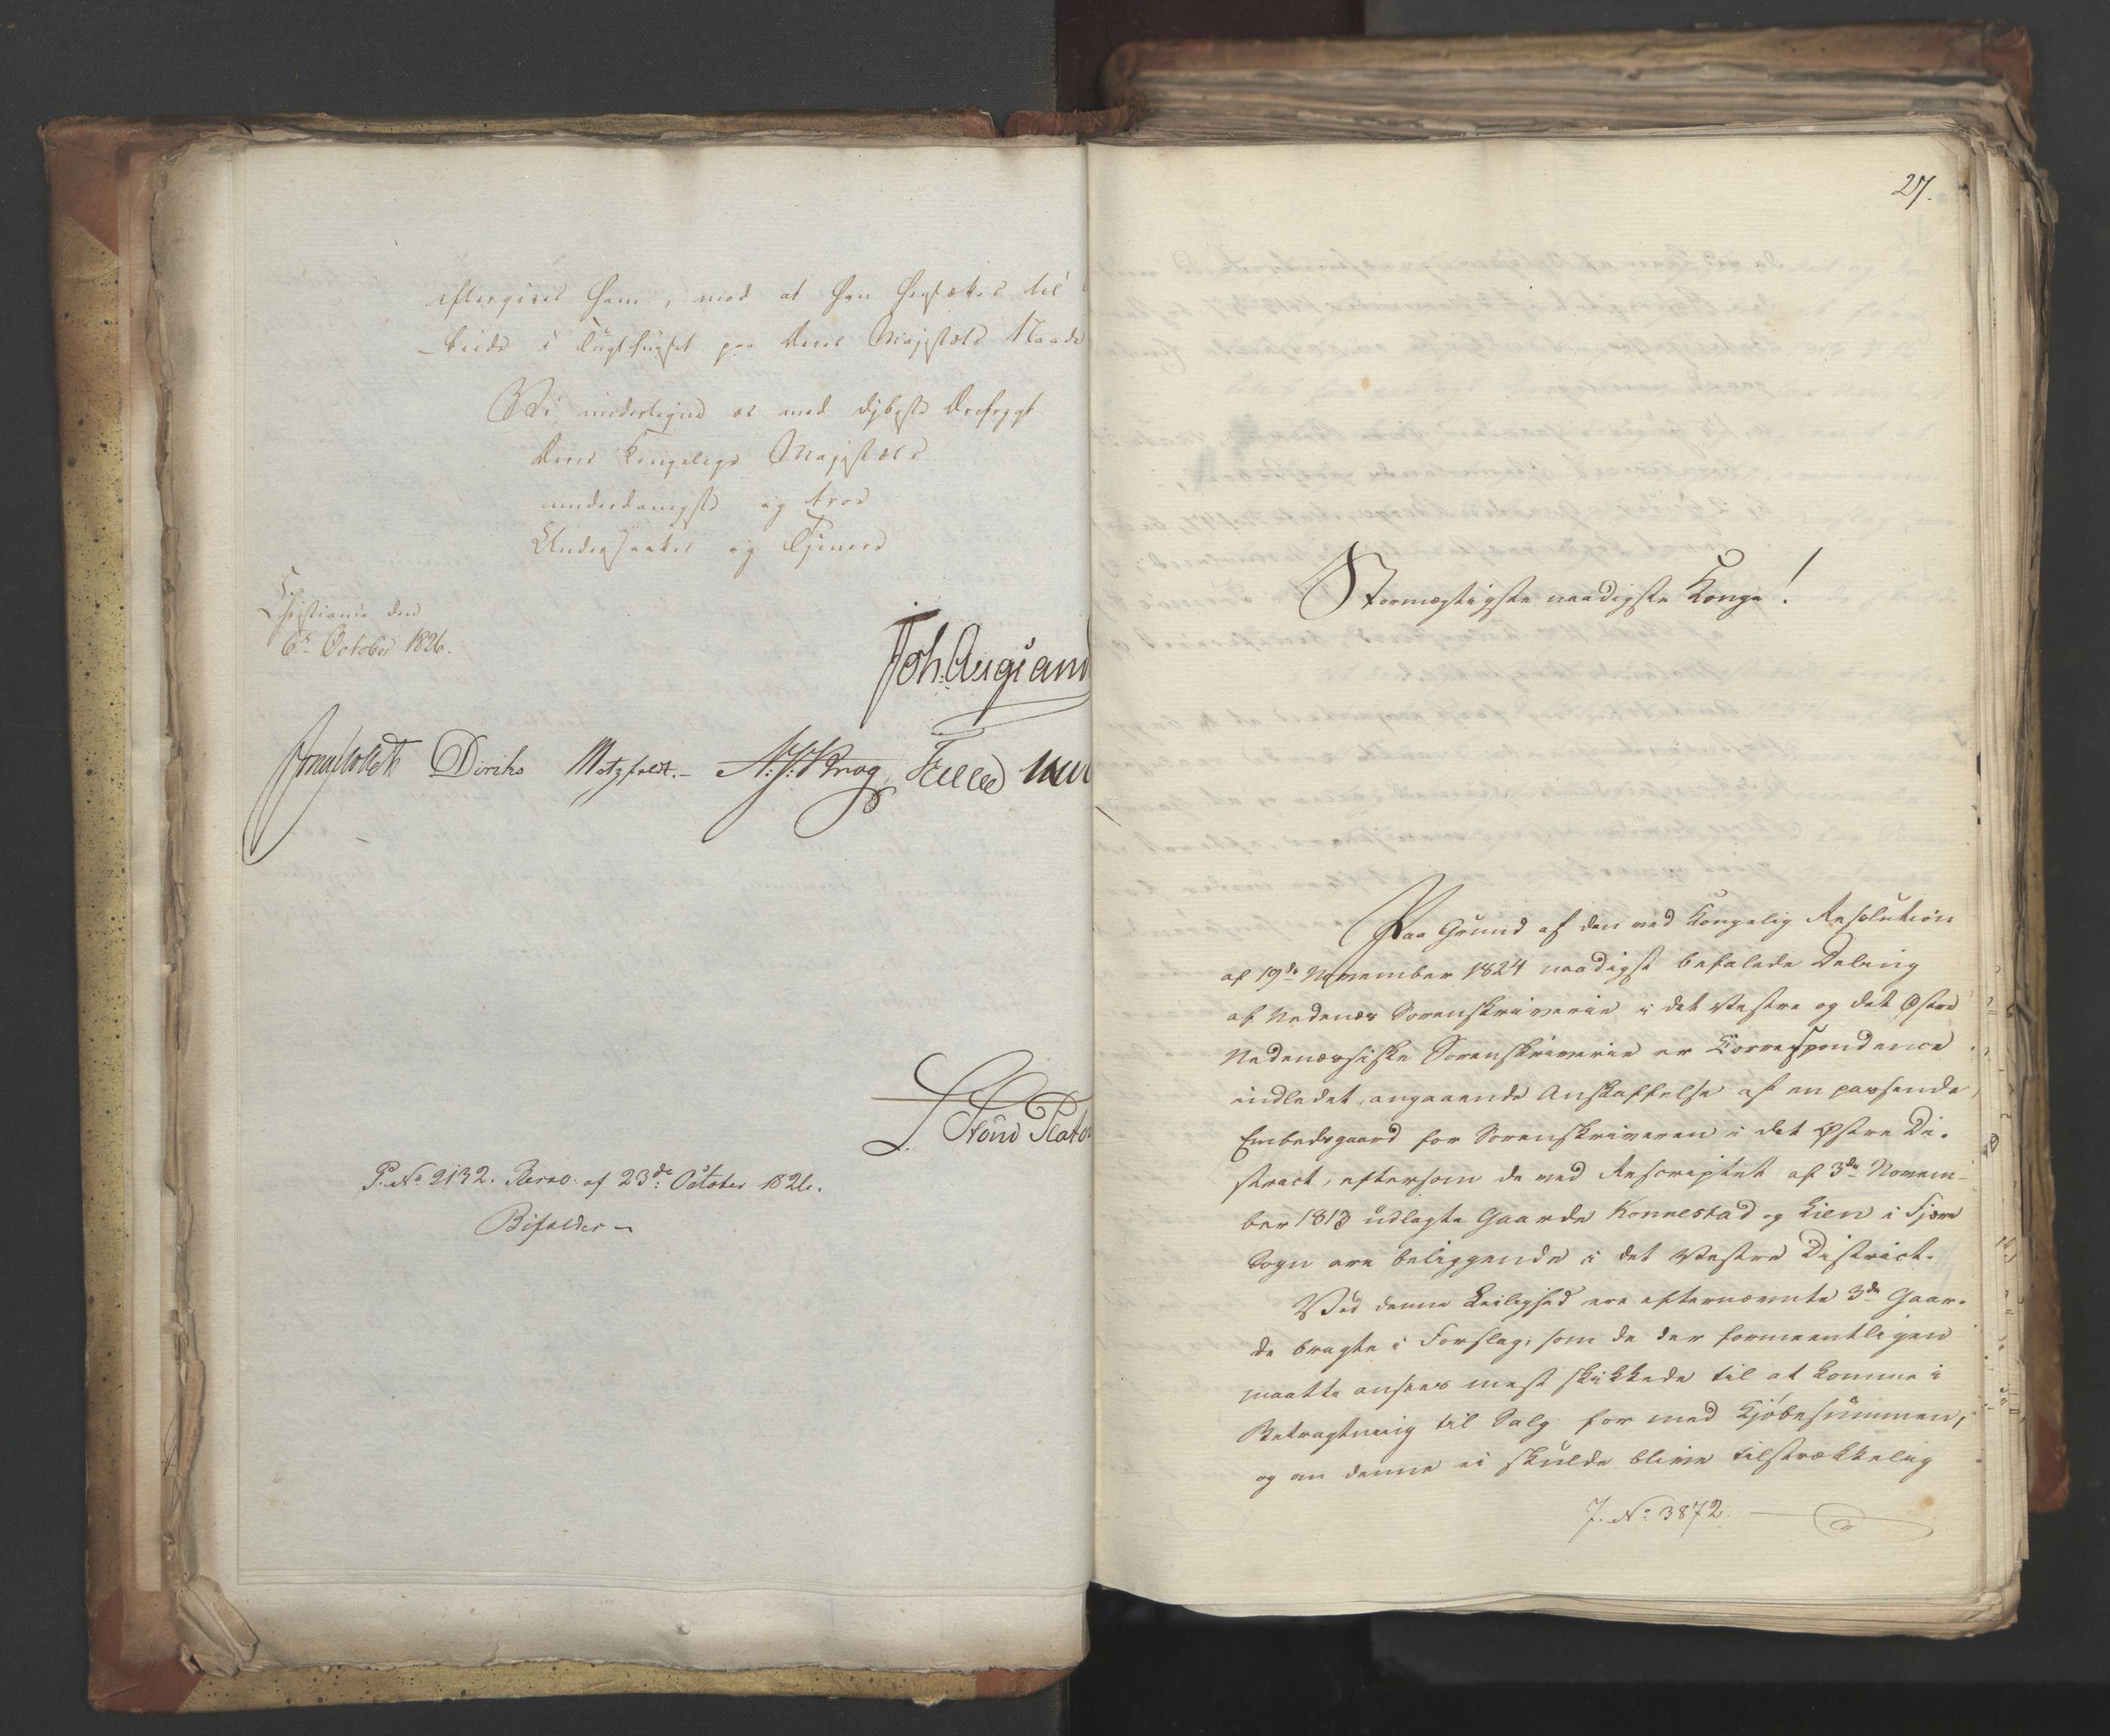 eftergives ham, mod at han hensættes til
-beide i Tugthuset paa Deres Majestæts Naade
Vi undertegne os med dybeste Ærefrygt
Deres Kongelige Majestæts
underdanigste og troe
Undersaatter og Tjenere
Christiania den
6te October 1826.
Joh. Collett Diriks Motzfeldt.- Krog
P. No 2132. Reso. af 23de October 1826.
Bifaldes
27.
Stormægtigste naadigste Konge!
Paa Grund af den ved Kongelig Resolution
af 19de November 1824 naadigst befalede Deling
af Nedenæs Sorenskriverie i det Vestre og det Østre
Nedenæsiske Sorenskriverie er Correspondence
indledet, angaaende Anskaffelse af en passende
Embedsgaard for Sorenskriveren i det Østre Di-
strict, eftersom de ved Rescriptet af 3de Novem-
ber 1813 udlagte Gaarde Konnestad og Lien i Fjære
Sogn ere beliggende i det Vestre District.
Ved denne Leilighed ere efternævnte 3de Gaar-
de bragte i Forslag, som de der formeentligen
maatte ansees mest skikkede til at komme i
Betragtning til Salg for med Kjøbesummen,
og om denne ei skulde blive tilstrækkelig
J. No 3872.